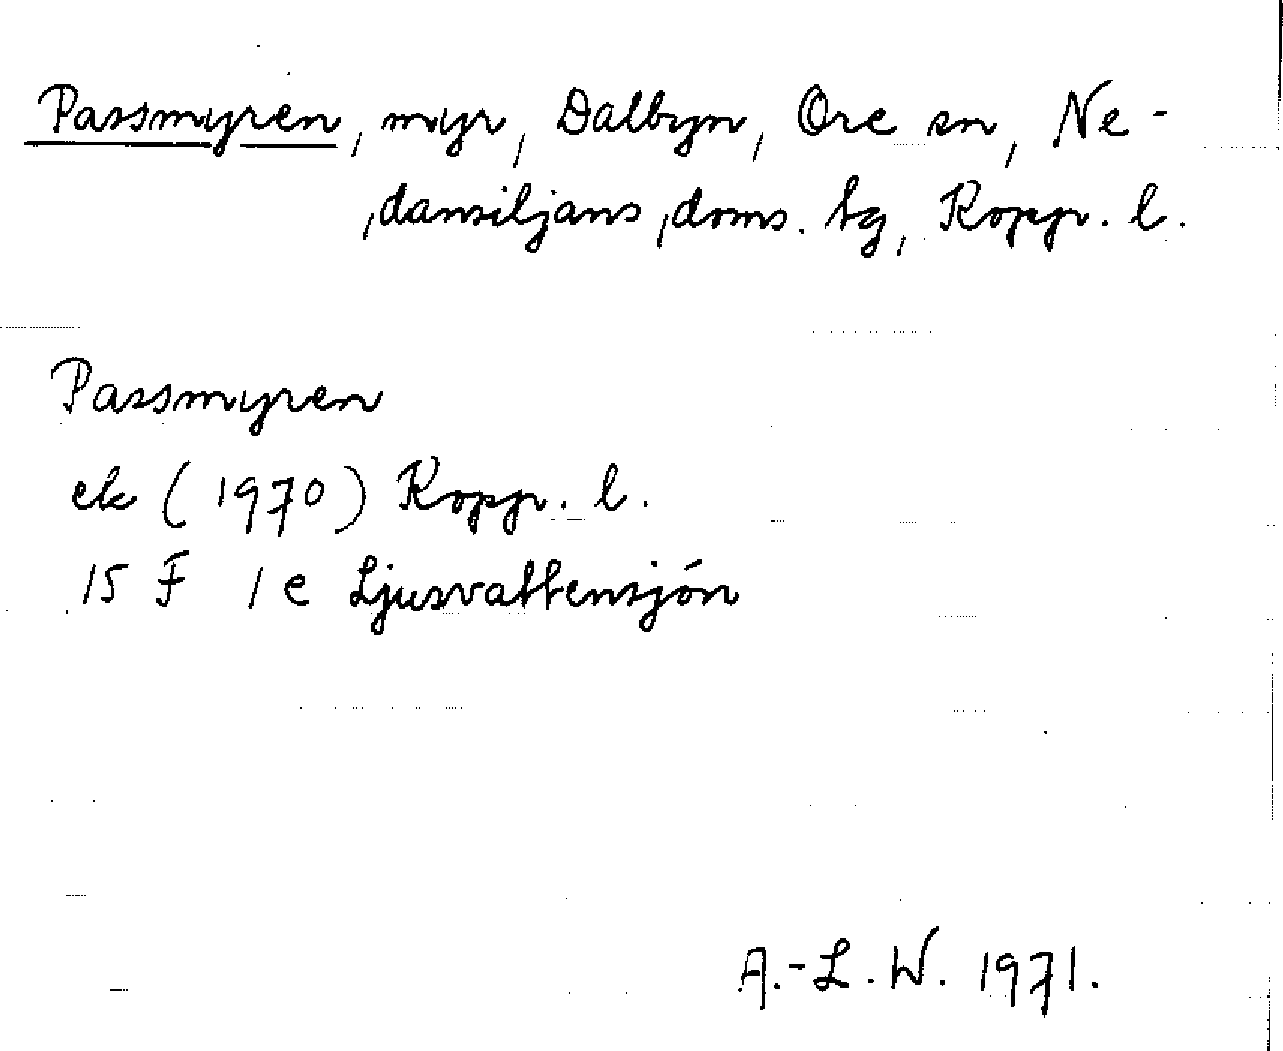 Passmyren, myr, Dalbyn, Ore sn, Ne-
dansiljans doms. tg, Koppr. l.
Passmyren
ek (1970) Koppr. l.
15 F 1 e Ljusvattensjön
A.-L. W. 1971.